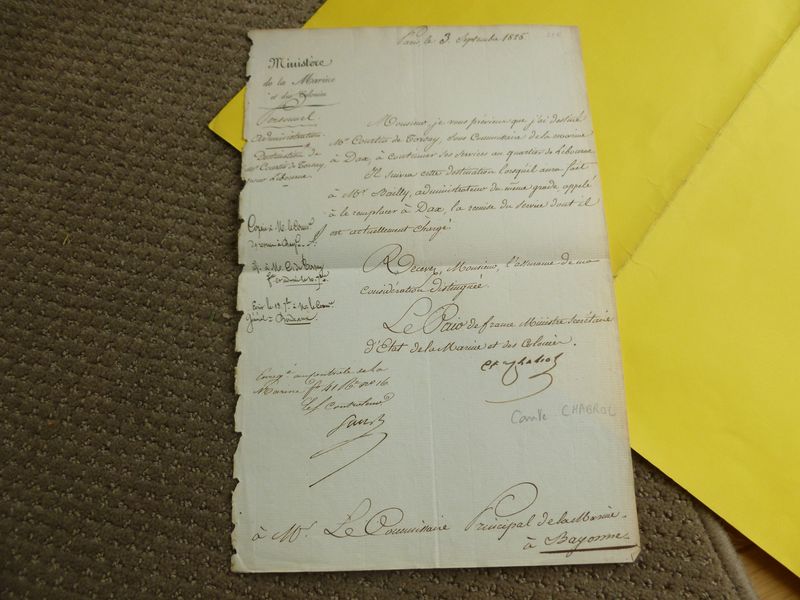 Paris, le 3 Septembre 1825
Ministère
de la Marine
et des Colonies
Personnel
Administration
Destination de
Mr Courtin de Torsay,
pour Libourne.
Monsieur, je vous préviens que j'ai destiné
Mr Courtin de Torsay, Sous Commissaire de la marine
à Dax, à continuer ses services au quartier de Libourne.
Il suivra cette destination lorsqu'il aura fait
à Mr Bailly, administrateur du même grade appelé
à le remplacer à Dax, la remise du service dont il
est actuellement chargé.
Copie à Mr le
à Mr
Ecrit le 13 à Mr le
Général à Bordeaux
Recevez, Monsieur, l'assurance de ma
considération distinguée.
Le Pair de france Ministre Secrétaire
d'Etat de la Marine et des Colonies.
Cte Chabrol
au contrôle de la
Marine fo 41 No
Le Contrôleur
Comte CHABROL
à Mr Le Commissaire Principal de la Marine
à Bayonne